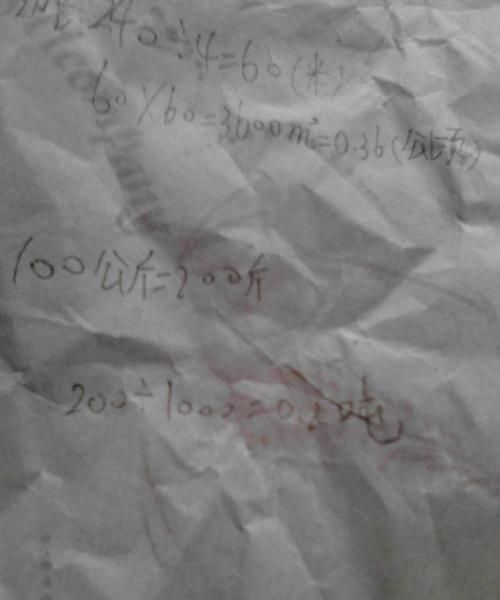 240÷4=60(米)
60×60=3600m²=0.36(公顷)
100公斤=200斤
200÷1000=0.2吨